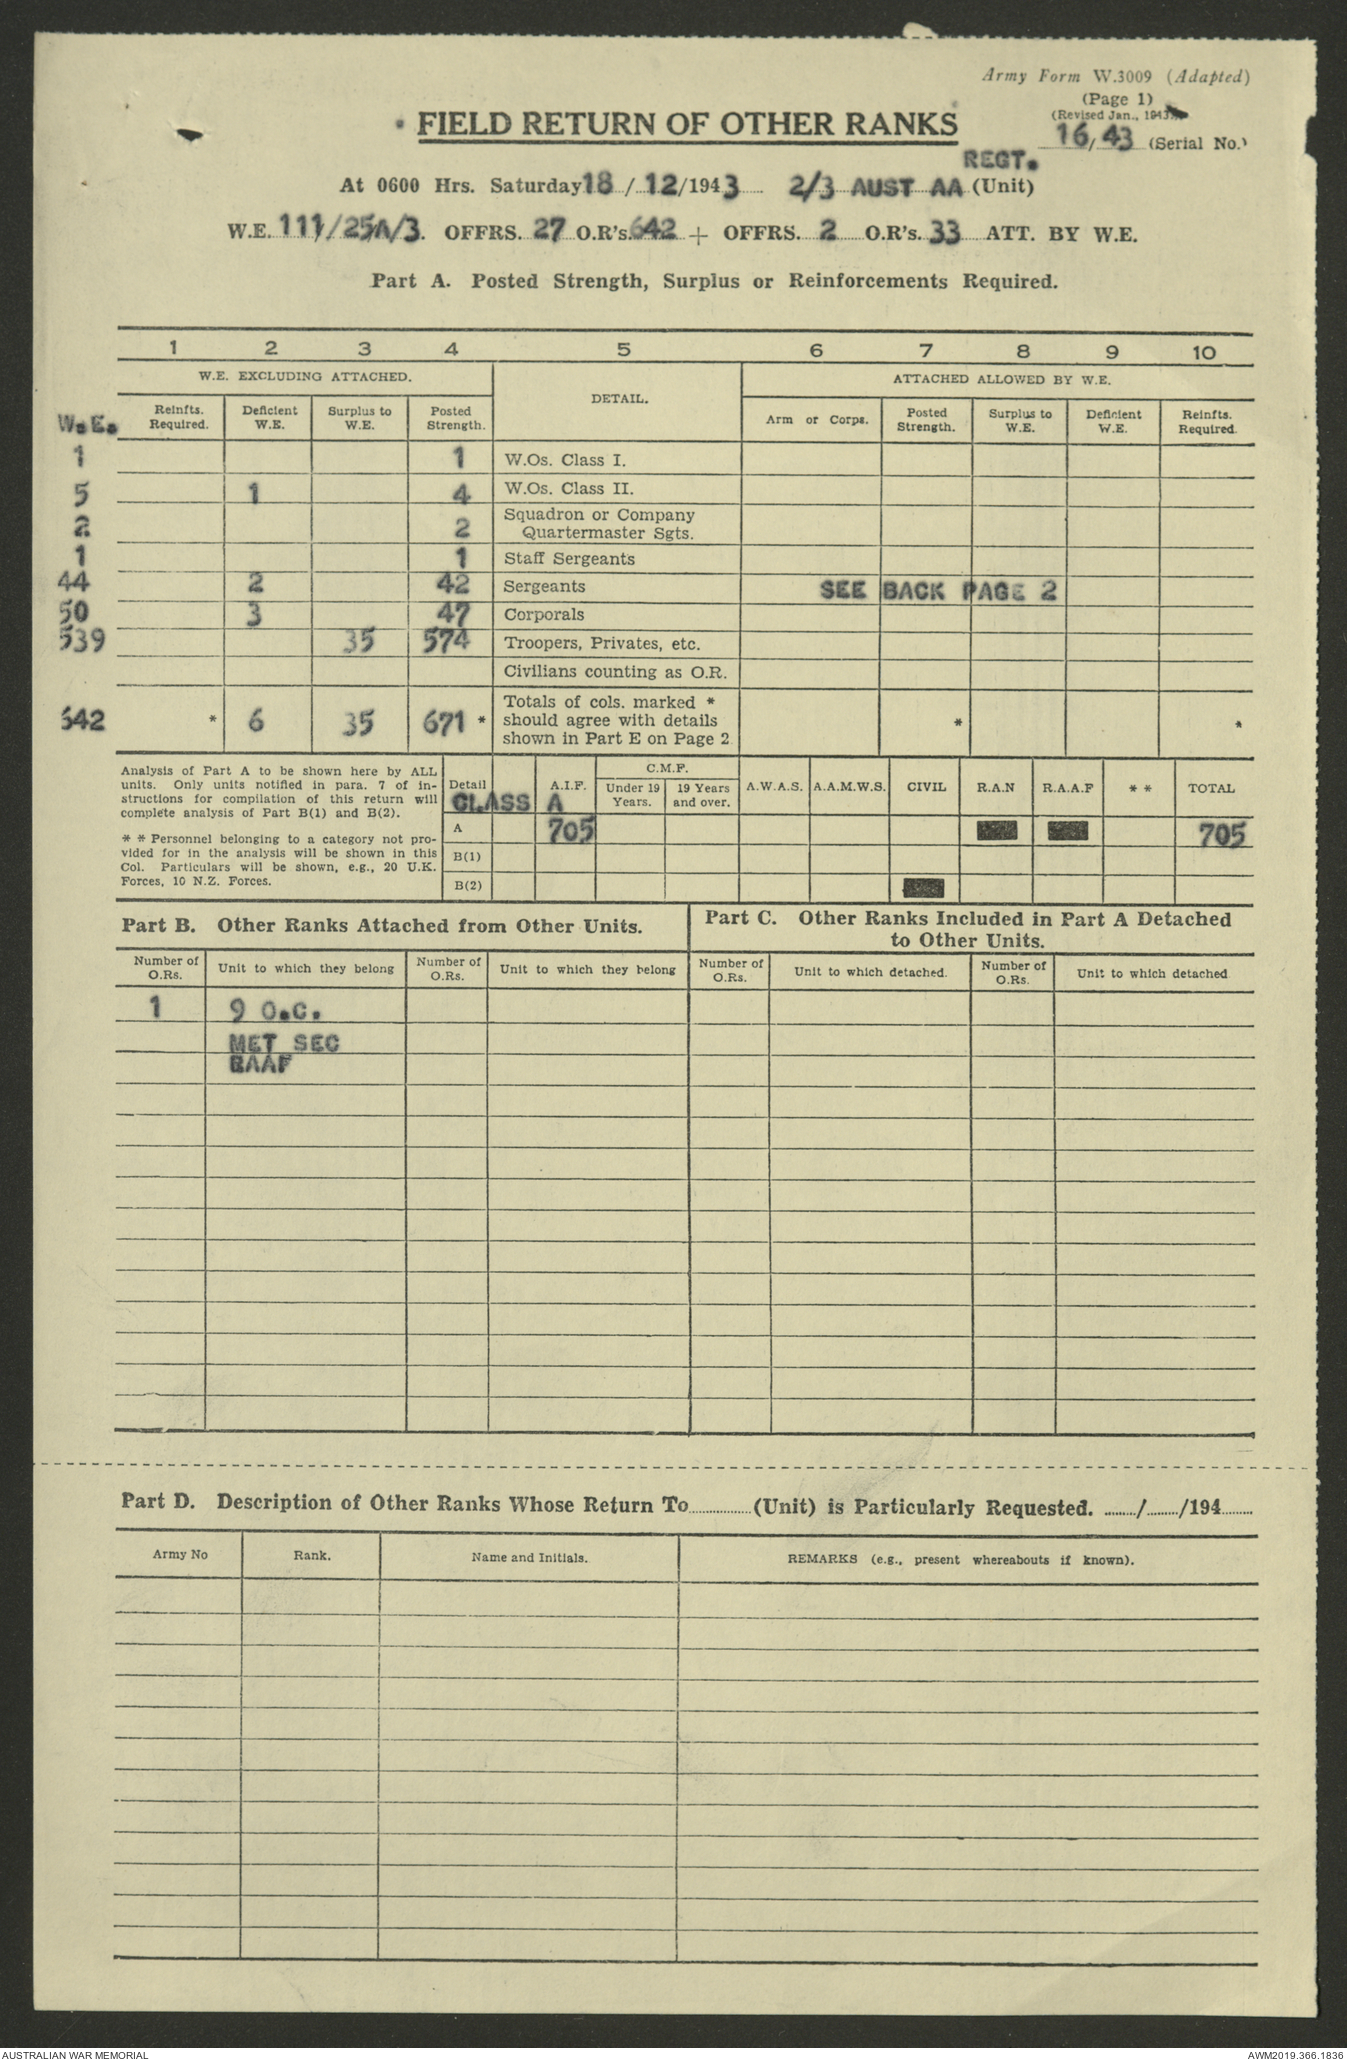 Army Form W.3009 (Adapted)
(Page 1)
(Revised Jan., 1943)
FIELD RETURN OF OTHER RANKS
16/43 (Serial No.)
REGT.
At 0600 Hrs. Saturday 18/12/1943 2/3 AUST AA (Unit)
W.E. 111/25A/3. OFFRS. 27 O.R's. 642 + OFFRS. 2 O.R's. 33 ATT. BY W.E.
Part A. Posted Strength, Surplus or Reinforcements Required.
1 2 3 4 5 6 7 8 9 10
W.E. EXCLUDING ATTACHED. DETAIL. ATTACHED ALLOWED BY W.E.
W.E. Reinfts. Required. Deficient W.E. Surplus to W.E. Posted Strength. Arm or Corps. Posted Strength. Surplus to W.E. Deficient W.E. Reinfts. Required.
1 1 W.Os. Class I.
5 1 4 W.Os. Class II.
2 2 Squadron or Company Quartermaster Sgts.
1 1 Staff Sergeants
44 2 42 Sergeants SEE BACK PAGE 2
50 3 47 Corporals
539 35 574 Troopers, Privates, etc.
Civilians counting as O.R.
642 * 6 35 671 * Totals of cols. marked * should agree with details shown in Part E on Page 2 * *
Analysis of Part A to be shown here by ALL
units. Only units notified in para. 7 of in-
structions for compilation of this return will
complete analysis of Part B(1) and B(2).
* * Personnel belonging to a category not pro-
vided for in the analysis will be shown in this
Col. Particulars will be shown, e.g., 20 U.K.
Forces, 10 N.Z. Forces.
C.M.F.
Detail A.I.F. Under 19 Years. 19 Years and over. A.W.A.S. A.A.M.W.S. CIVIL R.A.N R.A.A.F * * TOTAL
CLASS A
A 705 705
B(1)
B(2)
Part B. Other Ranks Attached from Other Units.
Part C. Other Ranks Included in Part A Detached
to Other Units.
Number of O.Rs. Unit to which they belong Number of O.Rs. Unit to which they belong Number of O.Rs. Unit to which detached. Number of O.Rs. Unit to which detached
1 9 O.C.
MET SEC
RAAF
Part D. Description of Other Ranks Whose Return To..........(Unit) is Particularly Requested. ....../....../194......
Army No Rank. Name and Initials. REMARKS (e.g., present whereabouts if known).
AUSTRALIAN WAR MEMORIAL
AWM2019.366.1836